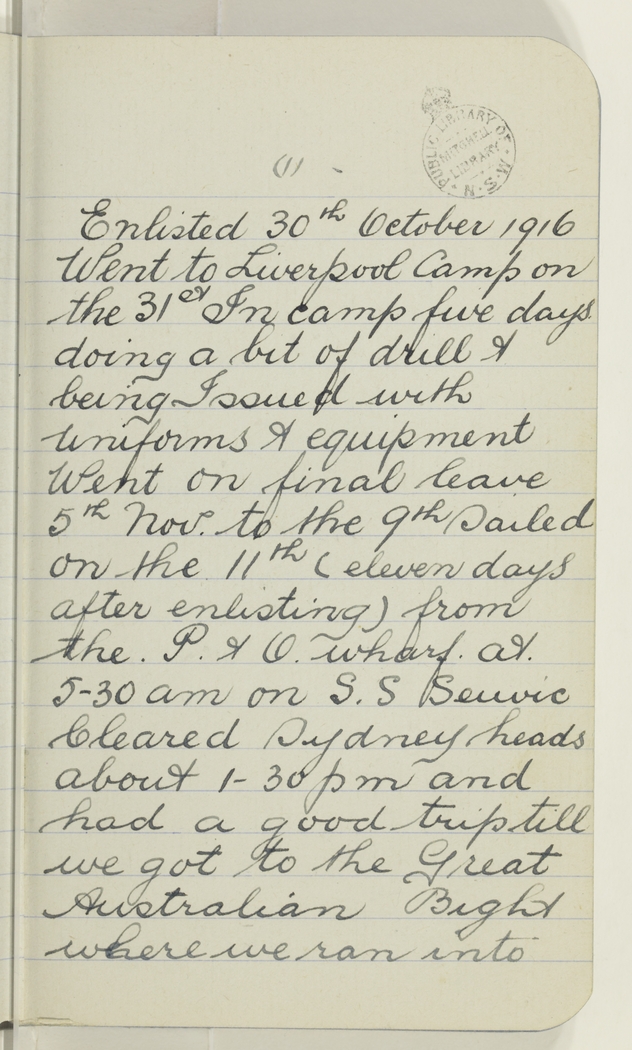 PUBLIC LIBRARY OF N.S.W.
MITCHELL
LIBRARY
(1)
Enlisted 30th October 1916
Went to Liverpool Camp on
the 31st In camp five days
doing a bit of drill &
being Issued with
uniforms & equipment
Went on final leave
5th Nov. to the 9th Sailed
on the 11th (eleven days
after enlisting) from
the. P. & O. wharf. at.
5-30 am on S.S Suevic
Cleared Sydney heads
about 1-30 pm and
had a good trip till
we got to the Great
Australian Bight
where we ran into